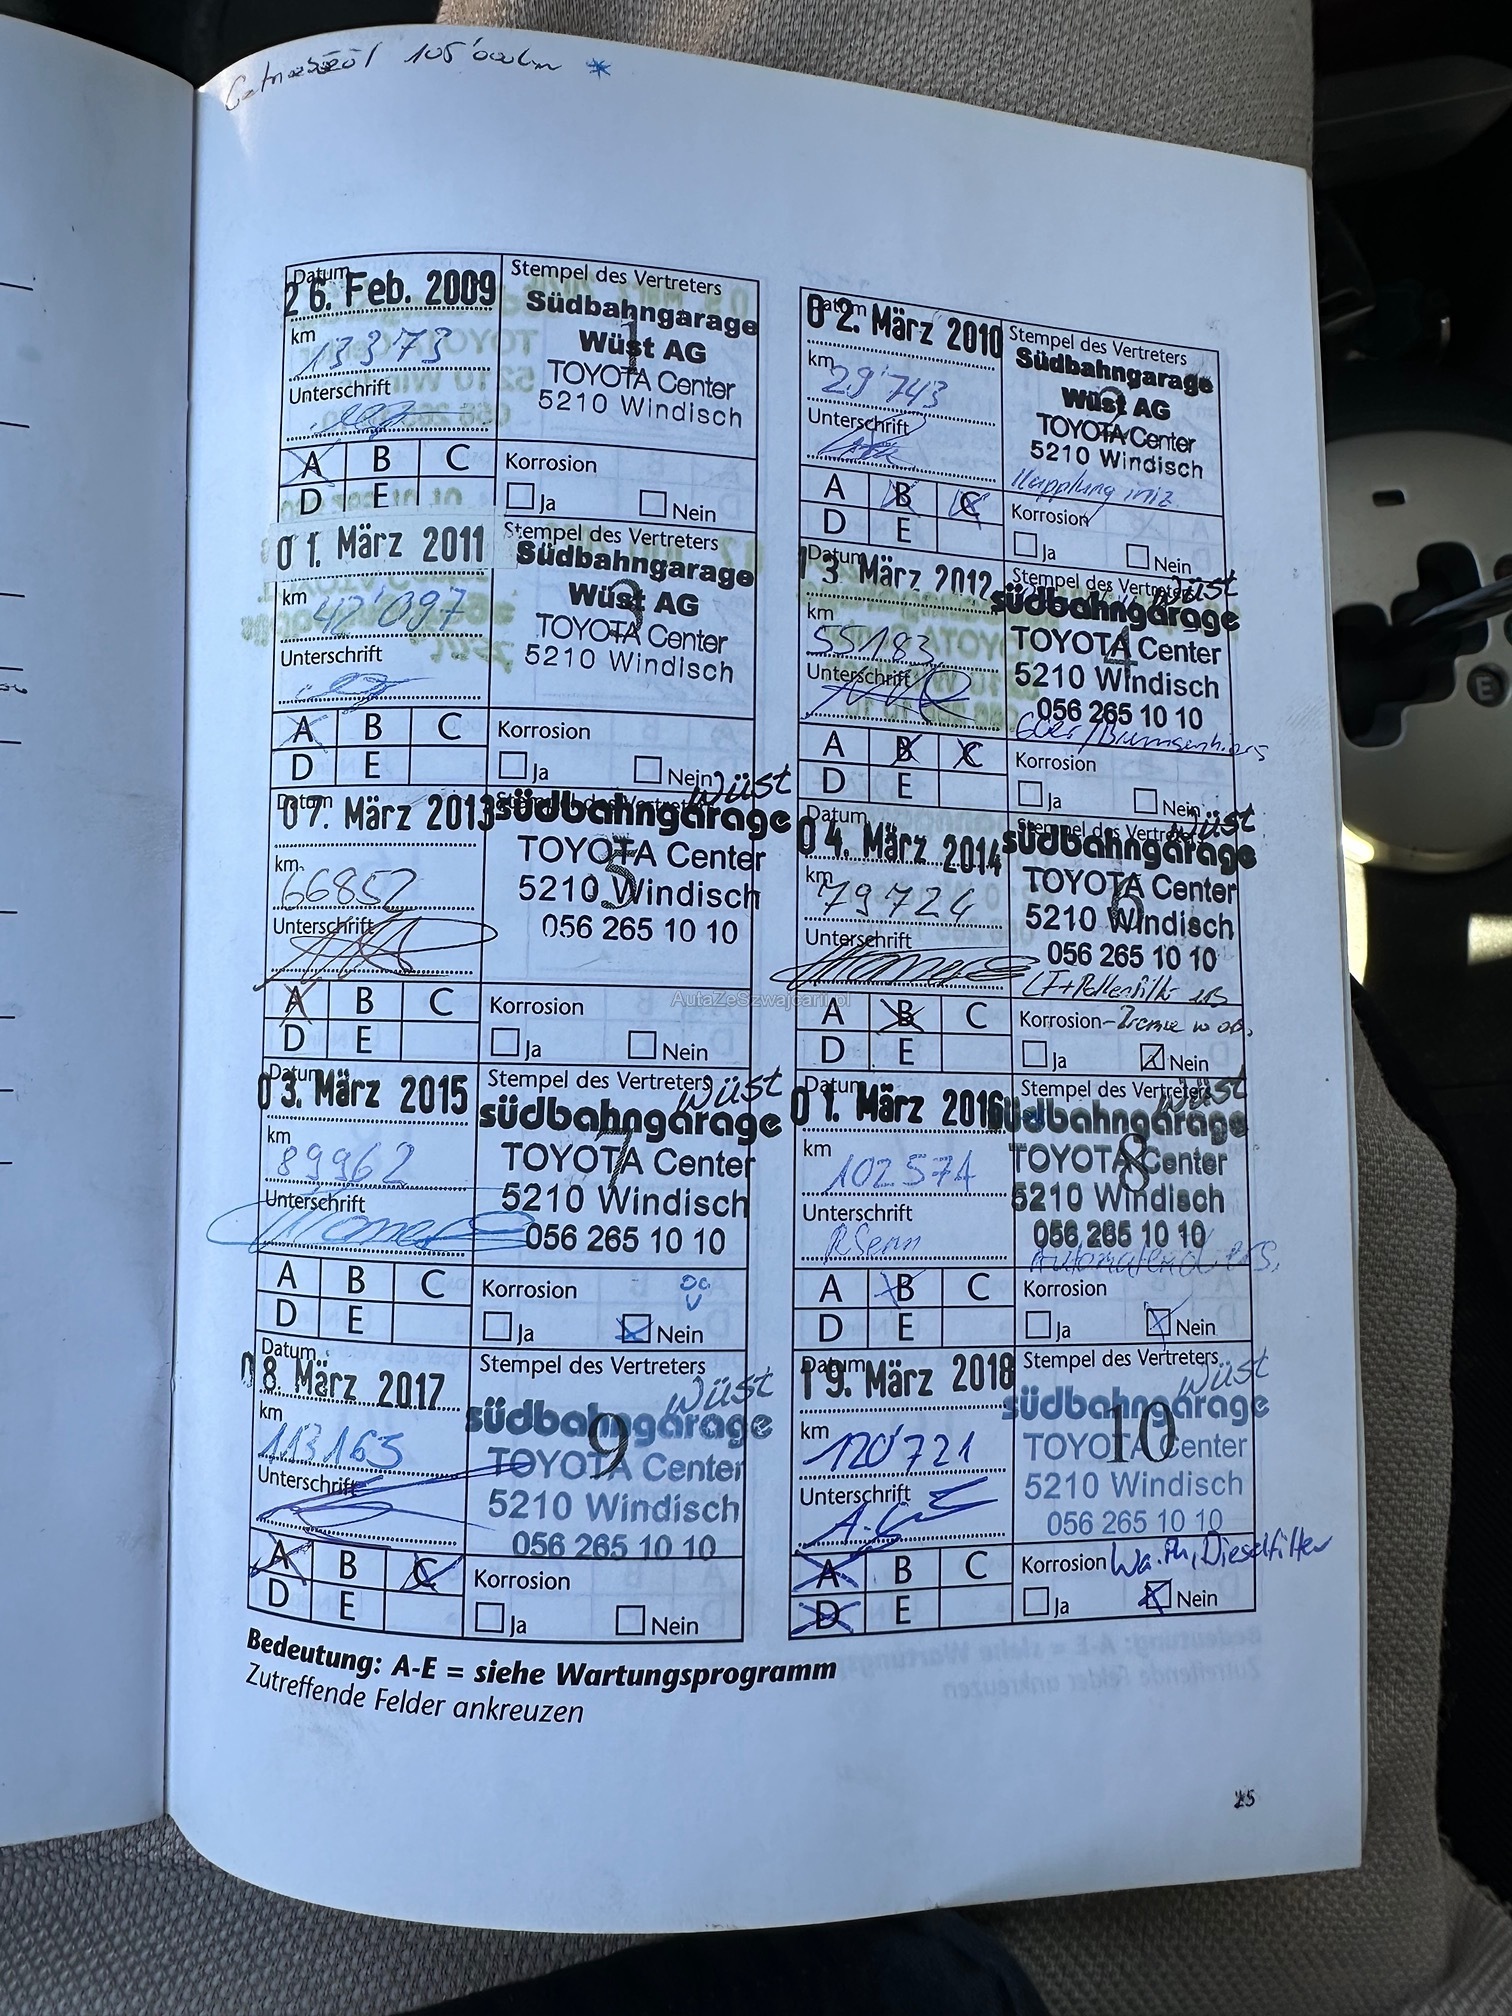 105'000km *
Datum
26. Feb. 2009
km
13'373
Unterschrift
Stempel des Vertreters
1
Südbahngarage
Wüst AG
TOYOTA Center
5210 Windisch
A B C
D E
Korrosion
Ja Nein
Datum
02. März 2010
km
29'743
Unterschrift
Stempel des Vertreters
Südbahngarage
Wüst AG
TOYOTA Center
5210 Windisch
A B C
D E
Korrosion
Ja Nein
01. März 2011
km
42'097
Unterschrift
Stempel des Vertreters
3
Südbahngarage
Wüst AG
TOYOTA Center
5210 Windisch
A B C
D E
Korrosion
Ja Nein
Datum
13. März 2012
km
55183
Unterschrift
Stempel des Vertreters
4
wüst
südbahngarage
TOYOTA Center
5210 Windisch
056 265 10 10
A B C
D E
Korrosion
Ja Nein
Datum
07. März 2013
km
66852
Unterschrift
Stempel des Vertreters
5
wüst
südbahngarage
TOYOTA Center
5210 Windisch
056 265 10 10
A B C
D E
Korrosion
Ja Nein
Datum
04. März 2014
km
79724
Unterschrift
Stempel des Vertreters
6
wüst
südbahngarage
TOYOTA Center
5210 Windisch
056 265 10 10
A B C
D E
Korrosion
Ja Nein
Datum
03. März 2015
km
89962
Unterschrift
Stempel des Vertreters
7
wüst
südbahngarage
TOYOTA Center
5210 Windisch
056 265 10 10
A B C
D E
Korrosion
Ja Nein
Datum
01. März 2016
km
102571
Unterschrift
Stempel des Vertreters
8
wüst
südbahngarage
TOYOTA Center
5210 Windisch
056 265 10 10
A B C
D E
Korrosion
Ja Nein
Datum
08. März 2017
km
113165
Unterschrift
Stempel des Vertreters
9
wüst
südbahngarage
TOYOTA Center
5210 Windisch
056 265 10 10
A B C
D E
Korrosion
Ja Nein
Datum
19. März 2018
km
120'721
Unterschrift
Stempel des Vertreters
10
wüst
südbahngarage
TOYOTA Center
5210 Windisch
056 265 10 10
A B C
D E
Korrosion Dieselfilter
Ja Nein
Bedeutung: A-E = siehe Wartungsprogramm
Zutreffende Felder ankreuzen
25
AutaZeSzwajcarii.pl
E